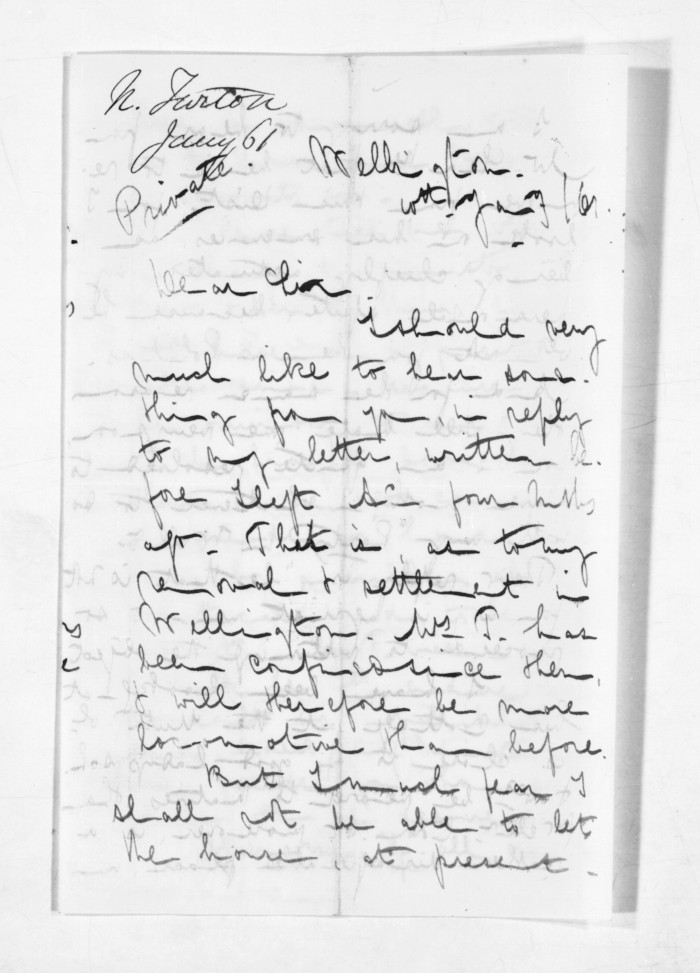 N. Turton
Jany 61
Private.
Wellington.
10th Jany /61.
Dear Sir,
I should very
much like to hear some-
thing from you, in reply
to my letter, written be-
fore I left &c four mths
ago. That is, as to my
removal & settlement in
Wellington. Mrs T. has
been confined since then,
& will therefore be more
loco-motive than before.
But I much fear I
shall not be able to let
the house, at present -